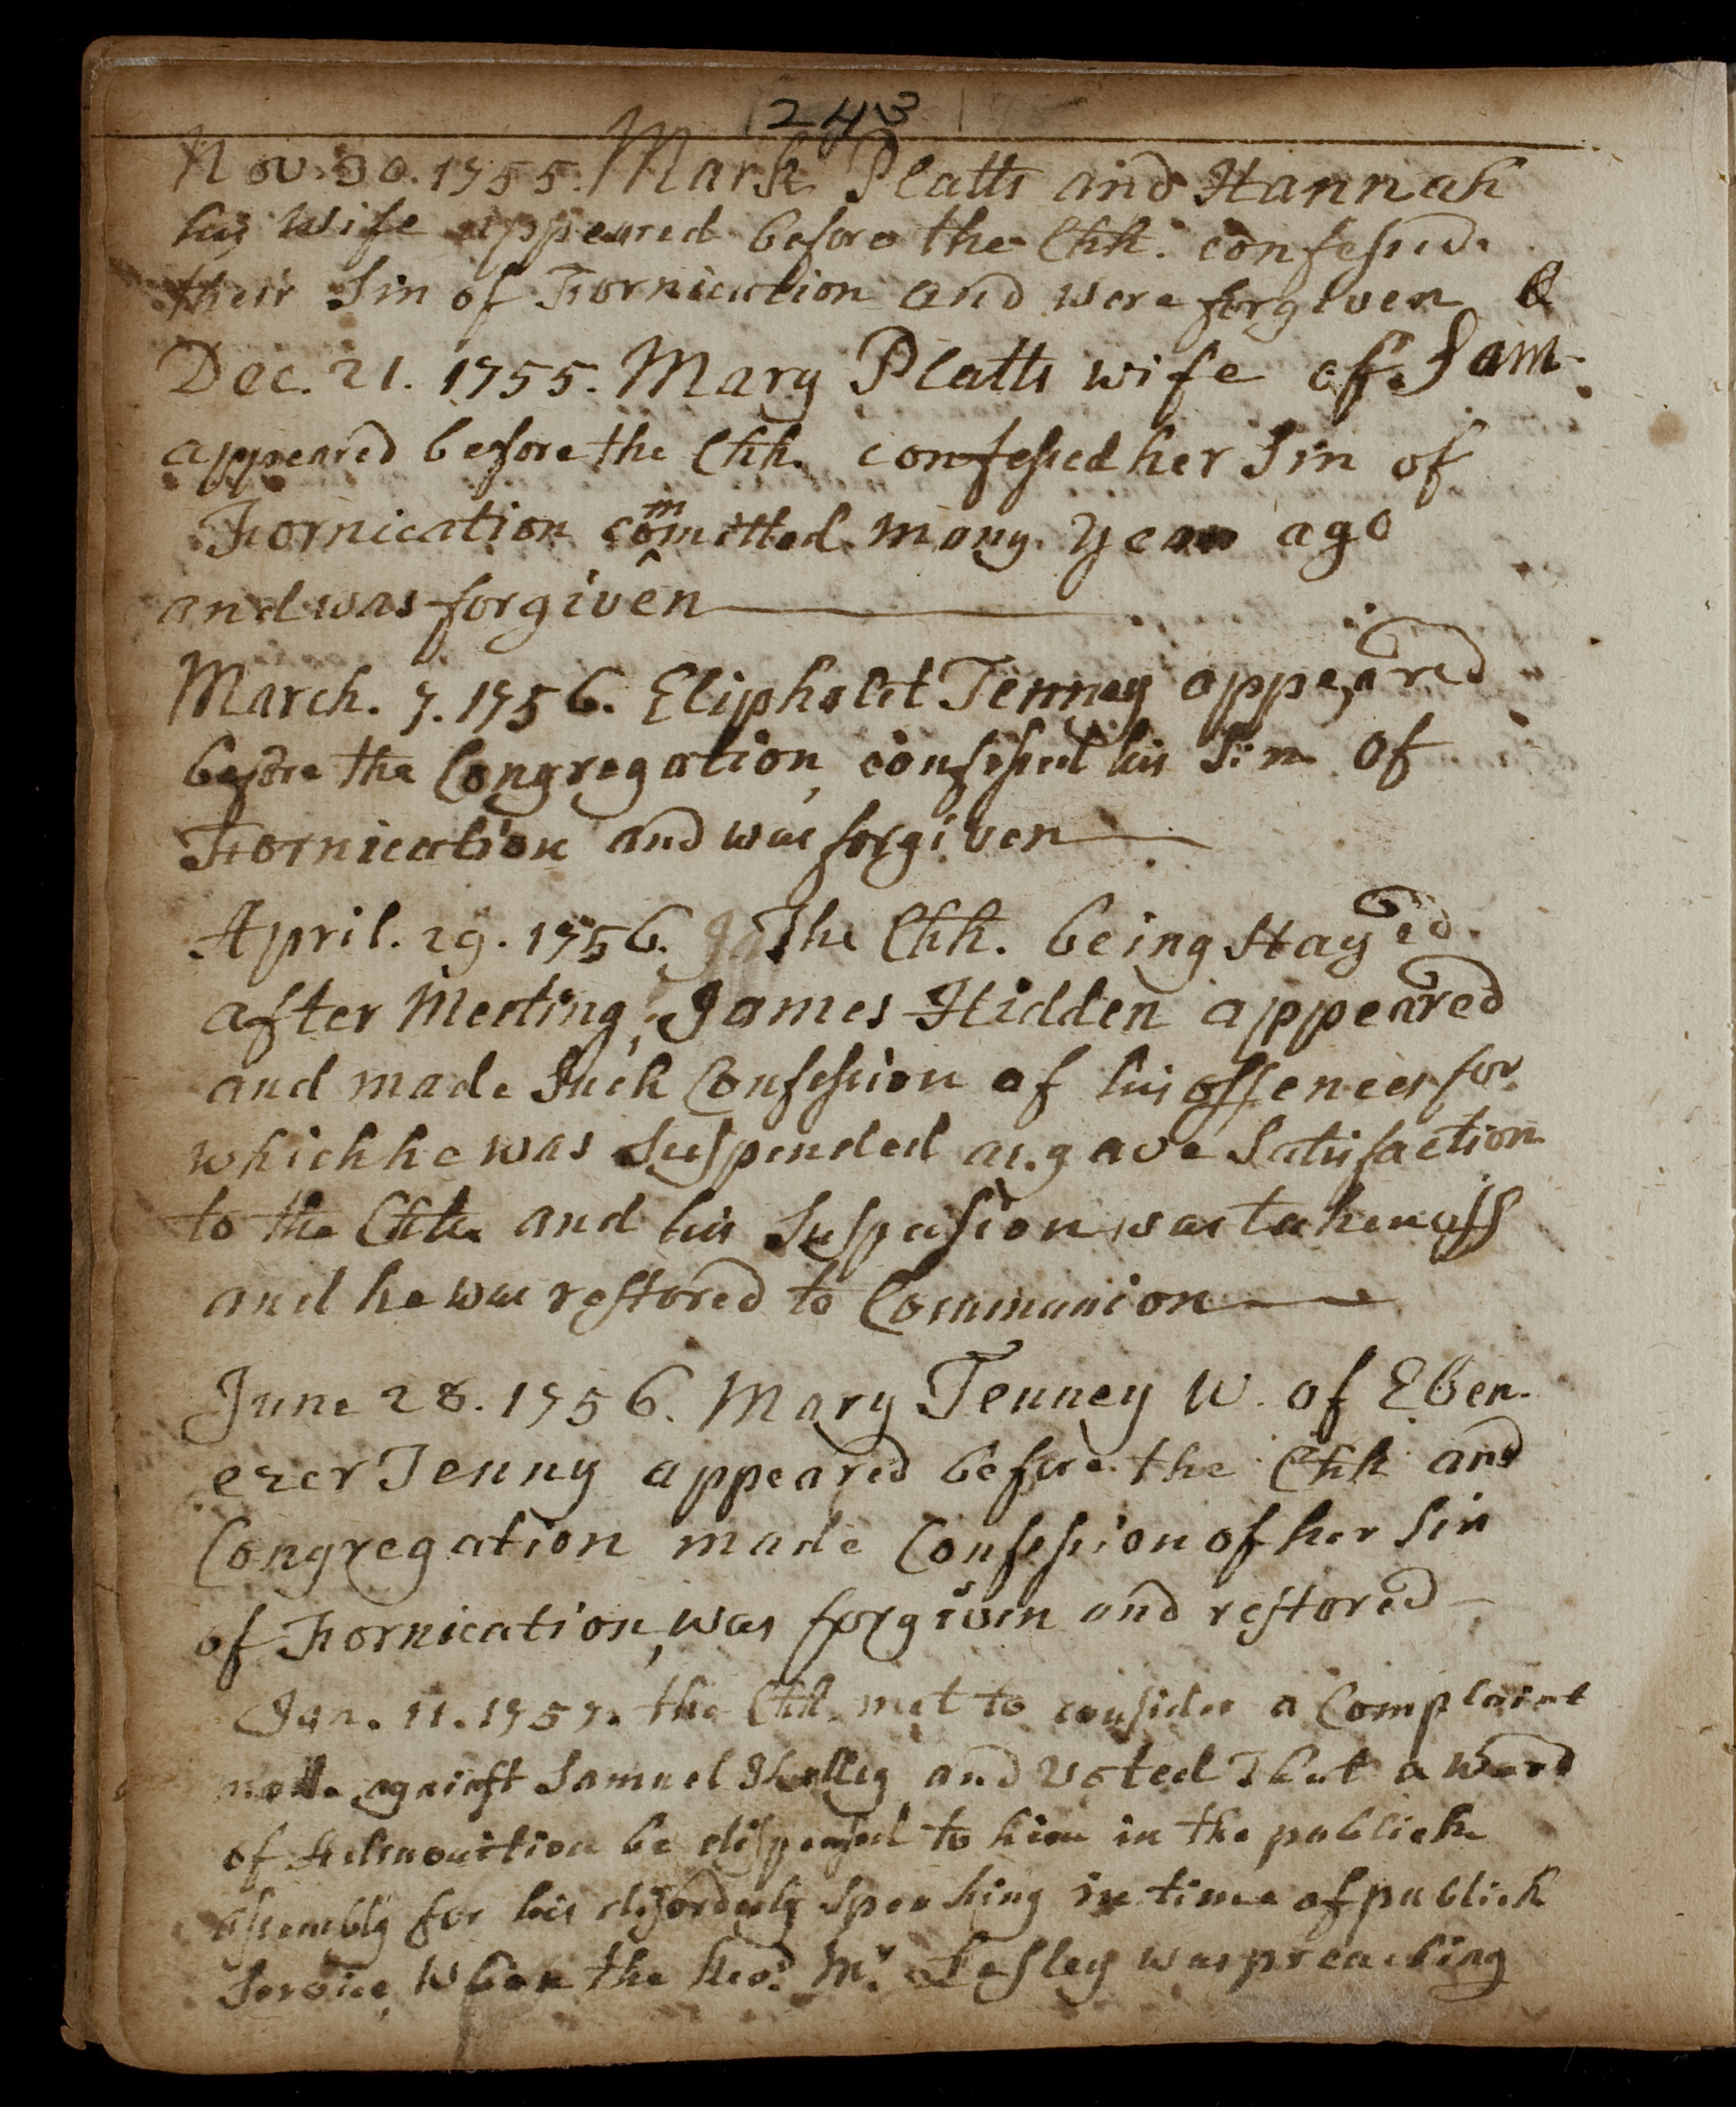 243
Nov. 30. 1755. Mark Platts and Hannah
his Wife appeared before the Chh. confessed
their Sin of Fornication and were forgiven &
Dec. 21. 1755. Mary Platts wife of Sam.
appeared before the Chh. confessed her Sin of
Fornication committed many years ago
and was forgiven
March. 7. 1756. Eliphalet Tenney appeared
before the Congregation, confessed his Sin of
Fornication and was forgiven
April. 29. 1756. The Chh. being Stayed
after Meeting, James Hidden appeared
and made Such Confession of his offences for
which he was Suspended as gave Satisfaction
to the Chh. and his Suspension was taken off
and he was restored to Communion
June 28. 1756. Mary Tenney W. of Eben-
ezer Tenny appeared before the Chh and
Congregation made Confession of her Sin
of Fornication, was forgiven and restored
Jan. 11. 1757. the Chh. met to consider a Complaint
made against Samuel and Voted That a Word
of Admonition be dispensed to him in the publick
assembly for his disorderly Speaking in time of publick
Service, When the Revd. Mr. Lesley was preaching